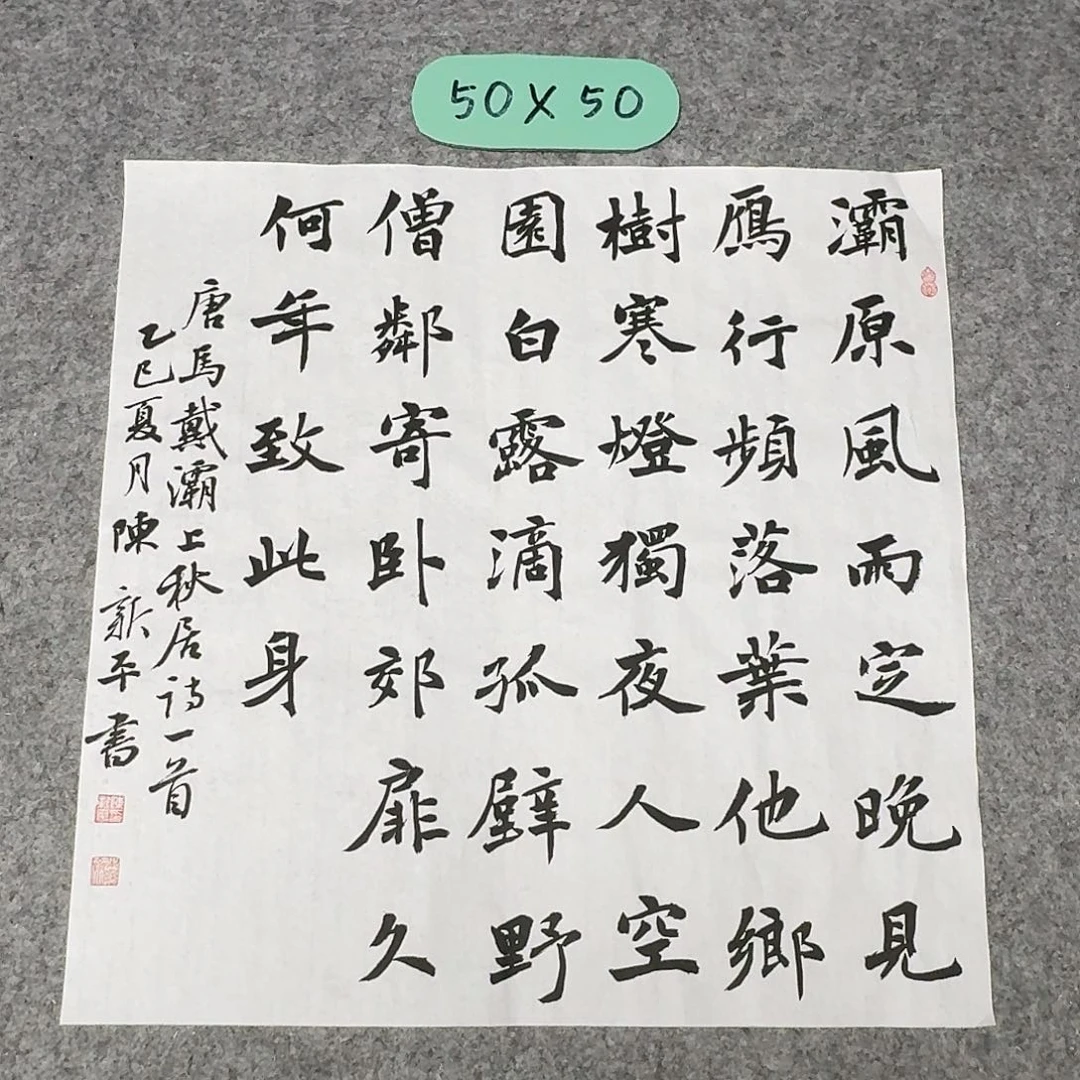 50X50
灞原風雨定晚見
鴈行頻落葉他鄉
樹寒燈獨夜人空
園白露滴孤壁野
僧鄰寄卧郊扉久
何年致此身
唐馬戴灞上秋居詩一首
乙巳夏月陳新平書